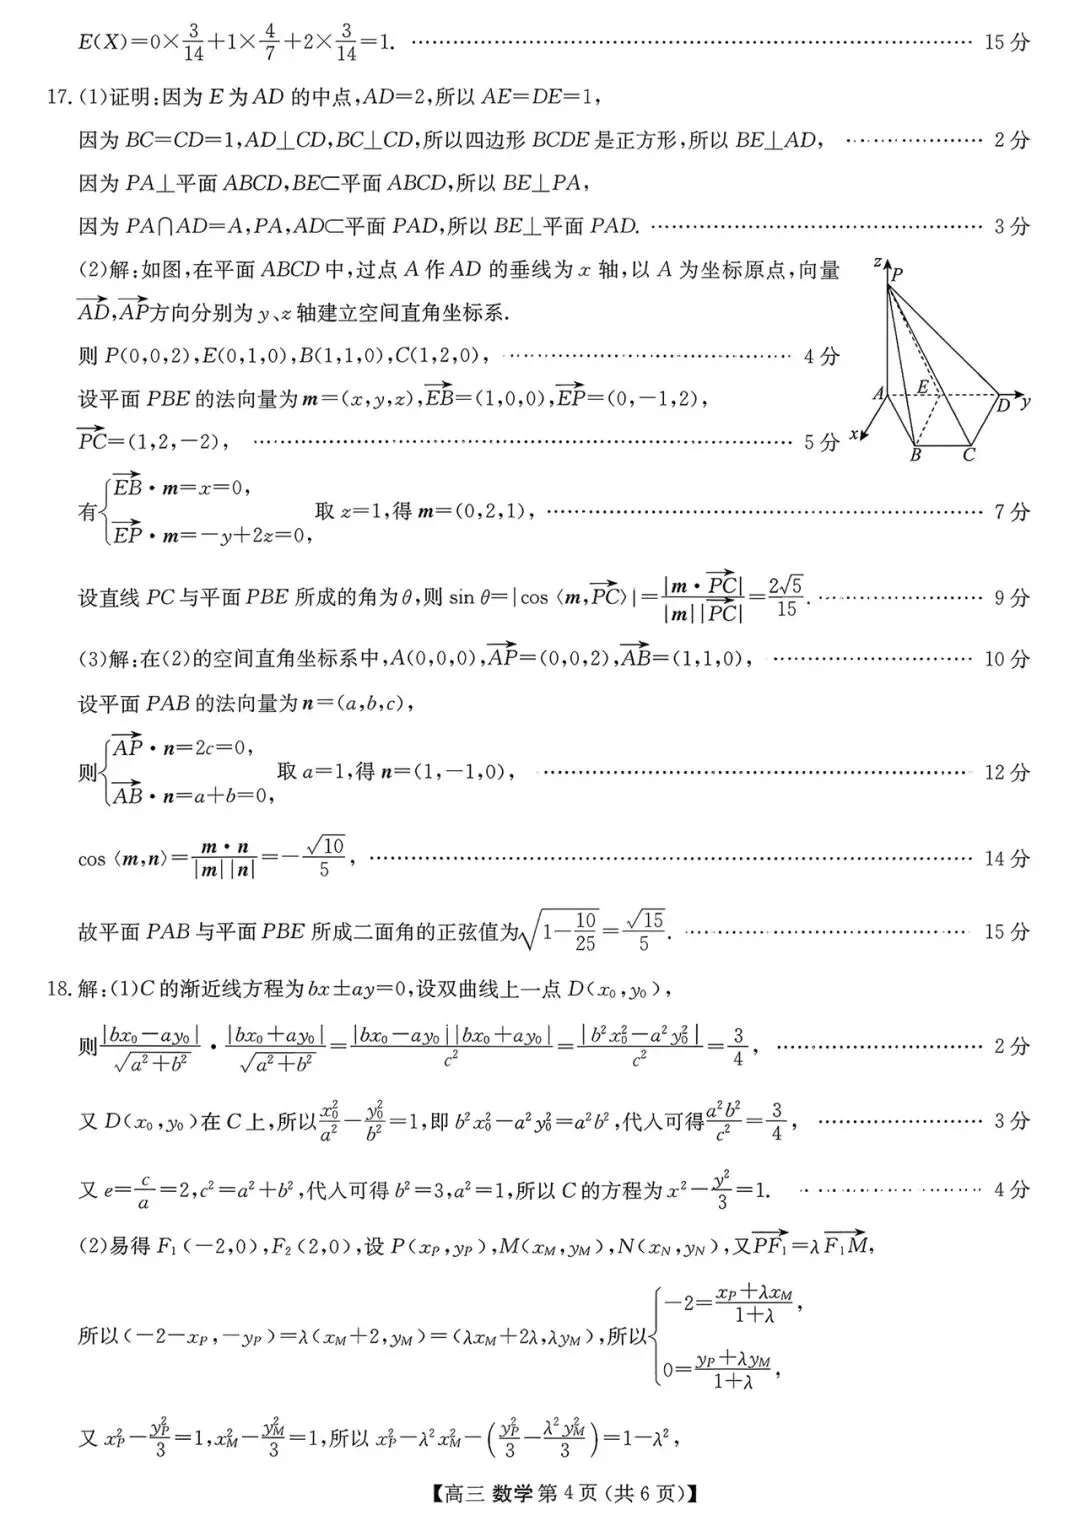 E(X)=0×3/14+1×4/7+2×3/14=1. …… 15分
17.(1)证明:因为E为AD的中点,AD=2,所以AE=DE=1,
因为BC=CD=1,AD⊥CD,BC⊥CD,所以四边形BCDE是正方形,所以BE⊥AD, …… 2分
因为PA⊥平面ABCD,BE⊂平面ABCD,所以BE⊥PA,
因为PA∩AD=A,PA,AD⊂平面PAD,所以BE⊥平面PAD. …… 3分
(2)解:如图,在平面ABCD中,过点A作AD的垂线为x轴,以A为坐标原点,向量
AD→,AP→方向分别为y、z轴建立空间直角坐标系.
则P(0,0,2),E(0,1,0),B(1,1,0),C(1,2,0), …… 4分
设平面PBE的法向量为m=(x,y,z),EB→=(1,0,0),EP→=(0,-1,2),
PC→=(1,2,-2), …… 5分
z
P
A
E
D
y
x
B
C
有{EB→·m=x=0, EP→·m=-y+2z=0, 取z=1,得m=(0,2,1), …… 7分
设直线PC与平面PBE所成的角为θ,则sin θ=|cos〈m,PC→〉|=|m·PC→|/|m||PC→|=2√5/15. …… 9分
(3)解:在(2)的空间直角坐标系中,A(0,0,0),AP→=(0,0,2),AB→=(1,1,0), …… 10分
设平面PAB的法向量为n=(a,b,c),
则{AP→·n=2c=0, AB→·n=a+b=0, 取a=1,得n=(1,-1,0), …… 12分
cos〈m,n〉=m·n/|m||n|=-√10/5, …… 14分
故平面PAB与平面PBE所成二面角的正弦值为√(1-10/25)=√15/5. …… 15分
18.解:(1)C的渐近线方程为bx±ay=0,设双曲线上一点D(x₀,y₀),
则|bx₀-ay₀|/√(a²+b²)·|bx₀+ay₀|/√(a²+b²)=|bx₀-ay₀||bx₀+ay₀|/c²=|b²x₀²-a²y₀²|/c²=3/4, …… 2分
又D(x₀,y₀)在C上,所以x₀²/a²-y₀²/b²=1,即b²x₀²-a²y₀²=a²b²,代入可得a²b²/c²=3/4, …… 3分
又e=c/a=2,c²=a²+b²,代入可得b²=3,a²=1,所以C的方程为x²-y²/3=1. …… 4分
(2)易得F₁(-2,0),F₂(2,0),设P(x_P,y_P),M(x_M,y_M),N(x_N,y_N),又PF₁→=λF₁M→,
所以(-2-x_P,-y_P)=λ(x_M+2,y_M)=(λx_M+2λ,λy_M),所以{-2=(x_P+λx_M)/(1+λ), 0=(y_P+λy_M)/(1+λ),
又x_P²-y_P²/3=1,x_M²-y_M²/3=1,所以x_P²-λ²x_M²-(y_P²/3-λ²y_M²/3)=1-λ²,
【高三 数学 第4页(共6页)】